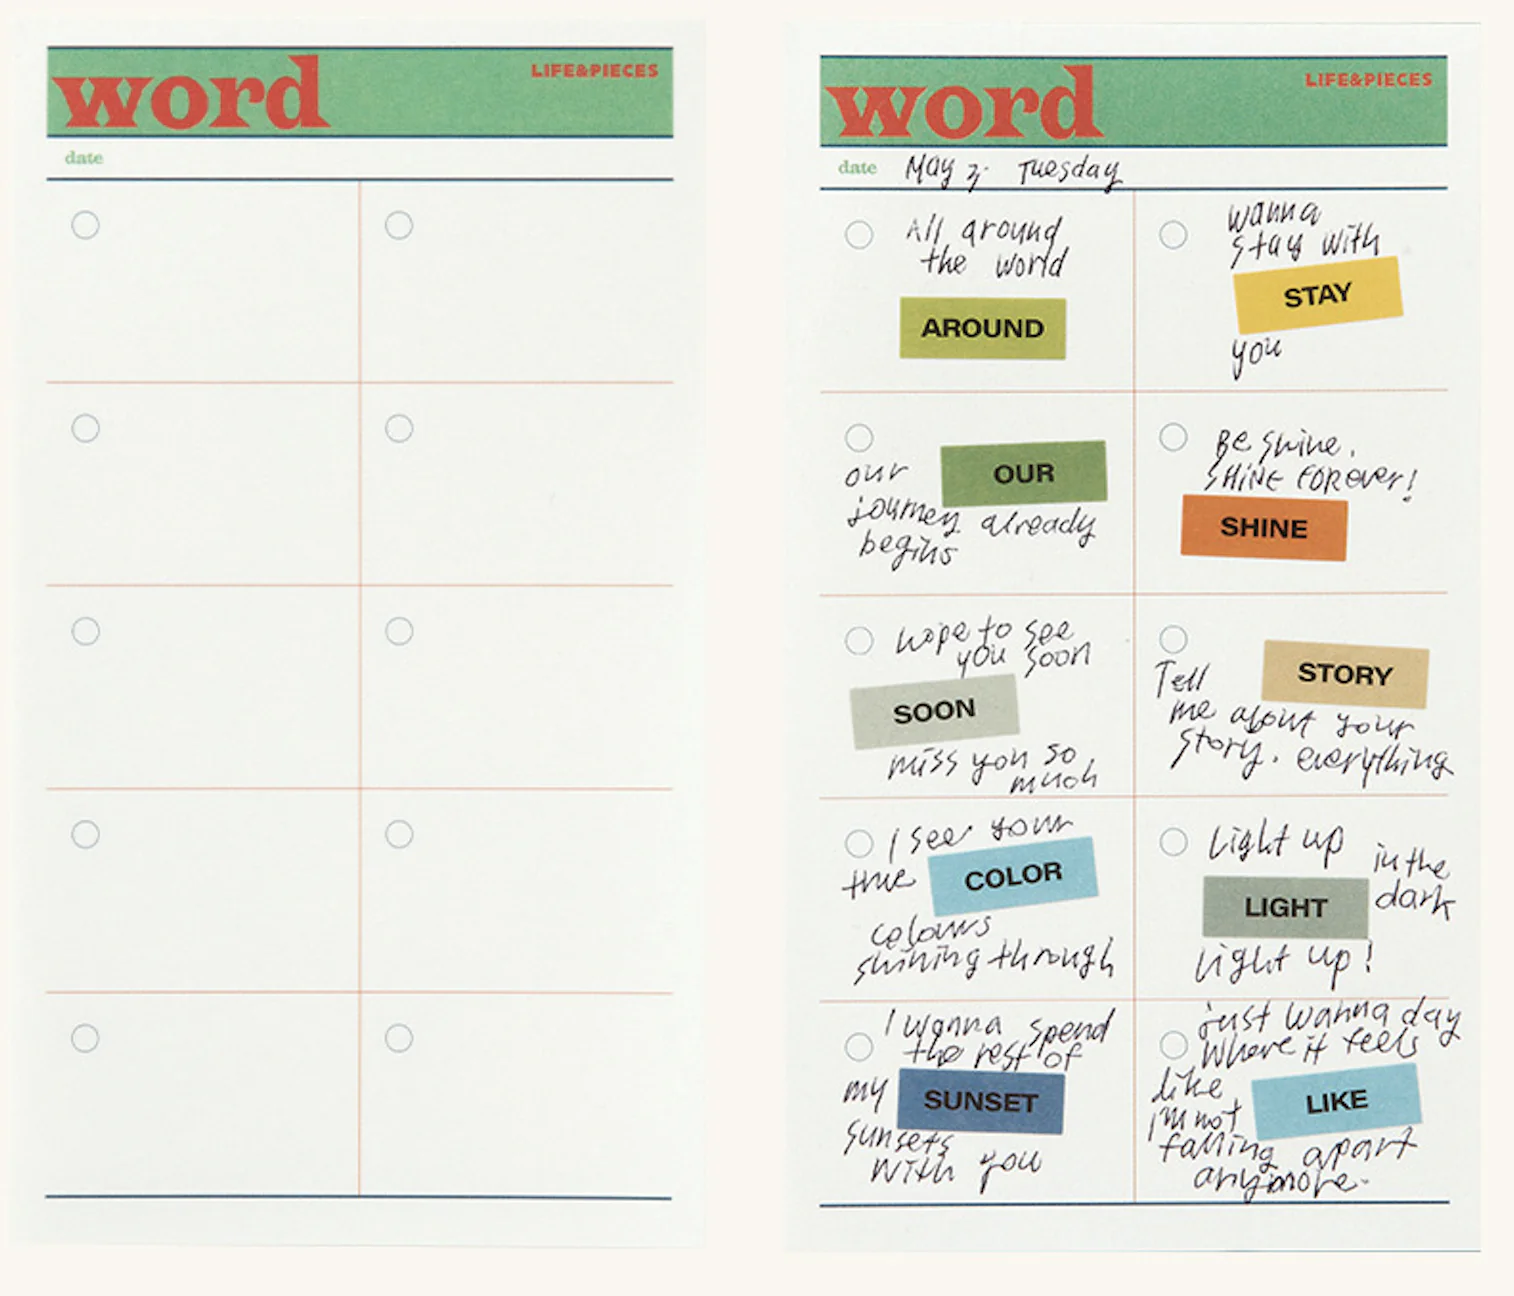 word
LIFE&PIECES
date
word
LIFE&PIECES
date May 3. Tuesday
All around
the world
AROUND
wanna
stay with
STAY
you
OUR
our
journey already
begins
Be shine.
SHINE FOREVER!
SHINE
hope to see
you soon
SOON
miss you so
much
STORY
Tell
me about your
story. everything
I see your
true
COLOR
colours
shining through
Light up
in the
dark
LIGHT
Light up!
I wanna spend
the rest of
my
SUNSET
sunsets
with you
just wanna day
where it feels
like
LIKE
I'm not
falling apart
anymore.